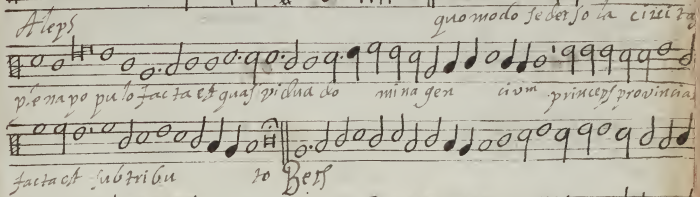 Aleph quomodo sedet sola civita
plena populo facta est quasi vidua domina gencium princeps provincia
facta est sub tributo Beth